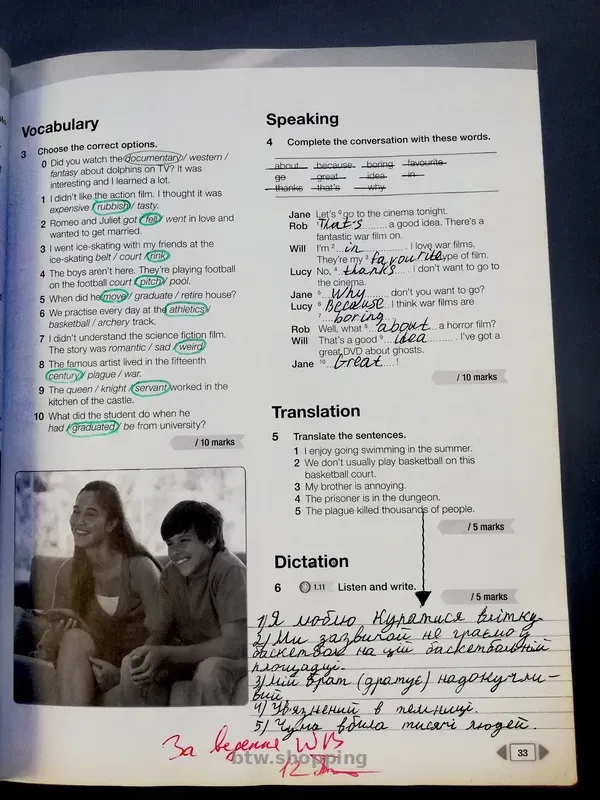 Vocabulary
3 Choose the correct options.
0 Did you watch the documentary / western /
fantasy about dolphins on TV? It was
interesting and I learned a lot.
1 I didn't like the action film. I thought it was
expensive / rubbish / tasty.
2 Romeo and Juliet got / fell / went in love and
wanted to get married.
3 I went ice-skating with my friends at the
ice-skating belt / court / rink.
4 The boys aren't here. They're playing football
on the football court / pitch / pool.
5 When did he move / graduate / retire house?
6 We practise every day at the athletics /
basketball / archery track.
7 I didn't understand the science fiction film.
The story was romantic / sad / weird.
8 The famous artist lived in the fifteenth
century / plague / war.
9 The queen / knight / servant worked in the
kitchen of the castle.
10 What did the student do when he
had / graduated / be from university?
/ 10 marks
Speaking
4 Complete the conversation with these words.
about because boring favourite
go great idea in
thanks that's why
Jane Let's 0 go to the cinema tonight.
Rob 1 That's a good idea. There's a
fantastic war film on.
Will I'm 2 in. I love war films.
They're my 3 favourite type of film.
Lucy No, 4 thanks. I don't want to go to
the cinema.
Jane 5 Why don't you want to go?
Lucy 6 Because I think war films are
7 boring.
Rob Well, what 8 about a horror film?
Will That's a good 9 idea. I've got a
great DVD about ghosts.
Jane 10 Great!
/ 10 marks
Translation
5 Translate the sentences.
1 I enjoy going swimming in the summer.
2 We don't usually play basketball on this
basketball court.
3 My brother is annoying.
4 The prisoner is in the dungeon.
5 The plague killed thousands of people.
/ 5 marks
Dictation
6 1.11 Listen and write.
/ 5 marks
1) Я люблю купатися влітку.
2) Ми зазвичай не граємо у
баскетбол на цій баскетбольній
площадці.
3) Мій брат (дратує) надокучли-
вий
4) Ув'язнений в темниці.
5) Чума вбила тисячі людей.
За ведение WB
12
btw.shopping
33